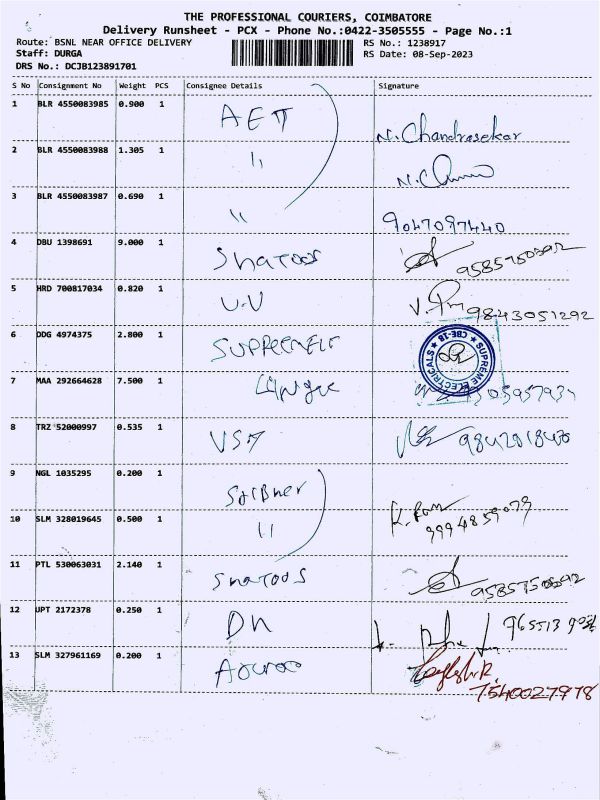 THE PROFESSIONAL COURIERS, COIMBATORE
Delivery Runsheet - PCX - Phone No.:0422-3505555 - Page No.:1
Route: BSNL NEAR OFFICE DELIVERY
RS No.: 1238917
Staff: DURGA
RS Date: 08-Sep-2023
DRS No.: DCJB123891701
S No Consignment No Weight PCS Consignee Details Signature
1 BLR 4550083985 0.900 1 AETT N. Chandrasekar
2 BLR 4550083988 1.305 1 ,,
3 BLR 4550083987 0.690 1 ,, 9047097440
4 DBU 1398691 9.000 1
5 HRD 700817034 0.820 1 U.U 9843051292
6 DDG 4974375 2.800 1
SUPREME ELECTRICALS ★ CBE-18 ★
7 MAA 292664628 7.500 1
8 TRZ 52000997 0.535 1
9 NGL 1035295 0.200 1
10 SLM 328019645 0.500 1 ,, 9994859079
11 PTL 530063031 2.140 1
12 UPT 2172378 0.250 1
13 SLM 327961169 0.200 1 7540027978